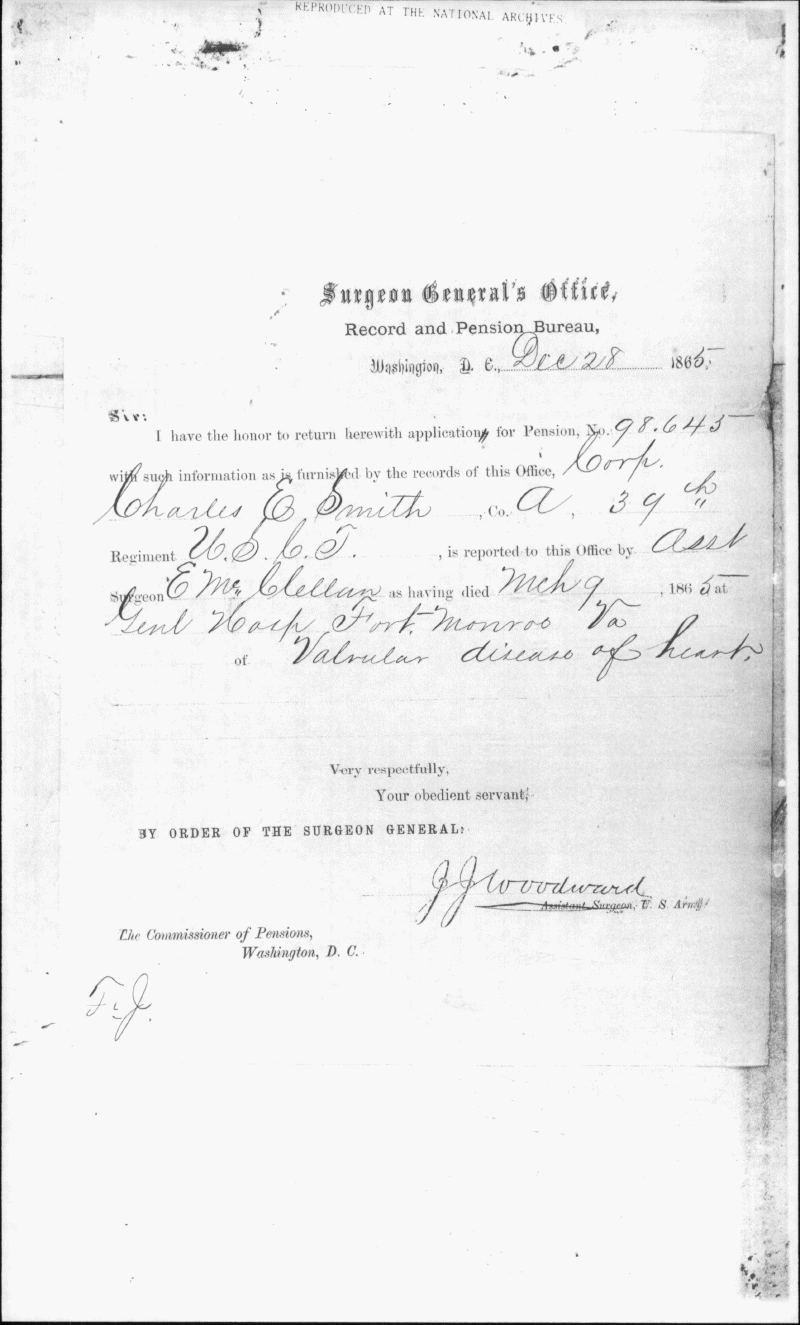 REPRODUCED AT THE NATIONAL ARCHIVES
Surgeon General's Office,
Record and Pension Bureau,
Washington, D. C., Dec 28 1865.
Sir:
I have the honor to return herewith application for Pension, No. 98.645
with such information as is furnished by the records of this Office, Corp.
Charles E Smith, Co. A, 39th
Regiment U.S.C.T., is reported to this Office by Asst
Surgeon E McClellan as having died Mch 9, 1865 at
Genl Hosp Fort Monroe Va
of Valvular disease of heart.
Very respectfully,
Your obedient servant,
BY ORDER OF THE SURGEON GENERAL:
J J Woodward
Assistant Surgeon, U. S. Army
The Commissioner of Pensions,
Washington, D. C.
F. J.